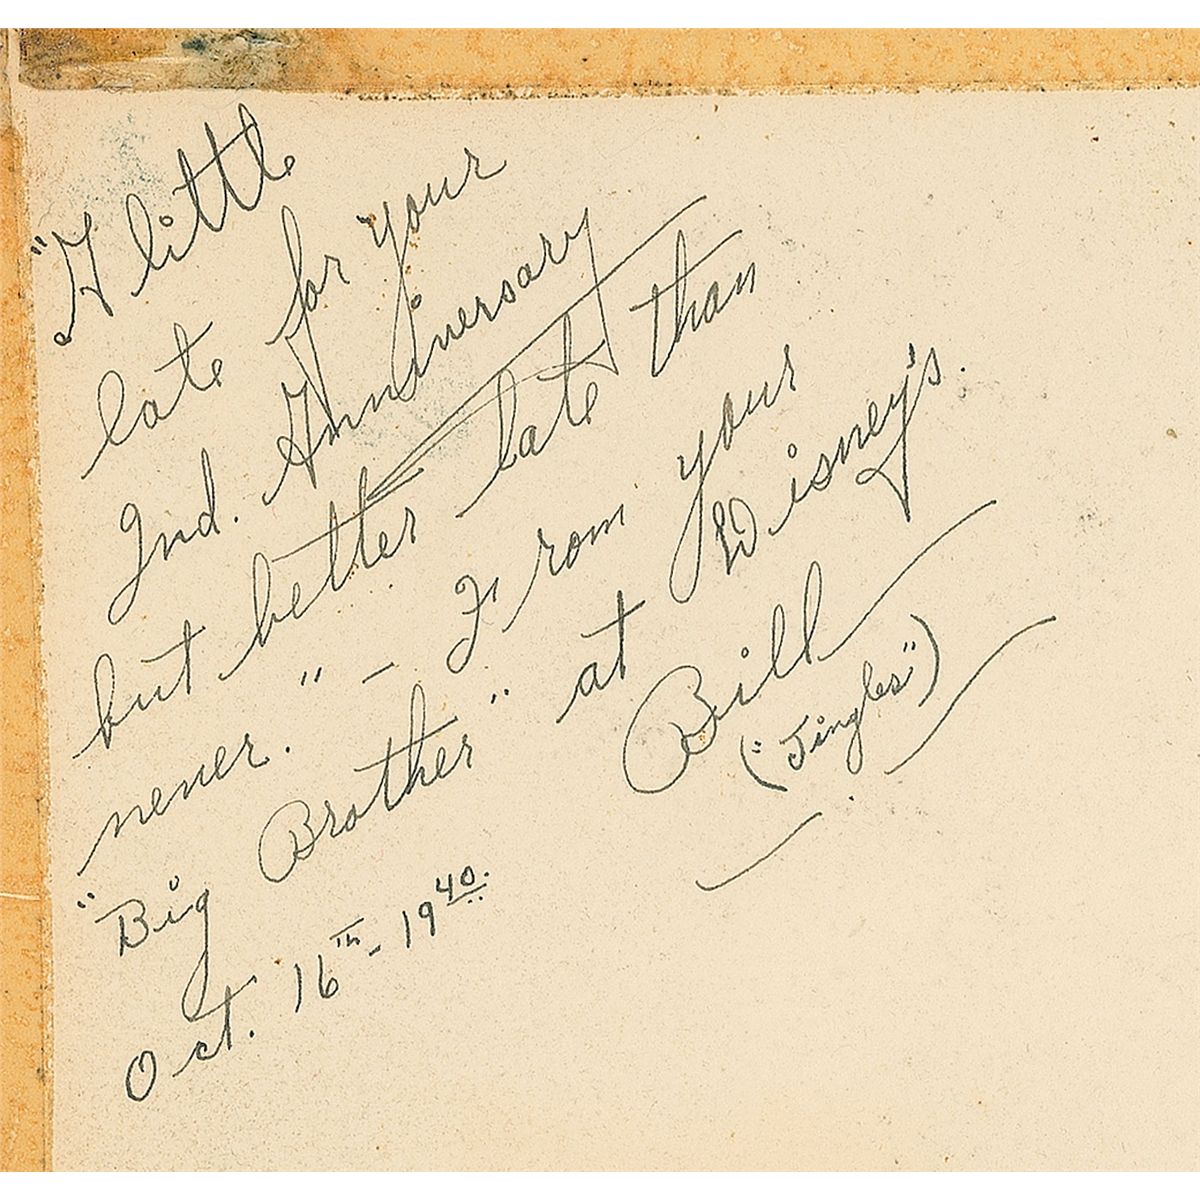 "A little
late for your
2nd. Anniversary
but better late than
never." – From your
"Big Brother" at Disney's.
Bill
("Jingles")
Oct. 16th - 1940.